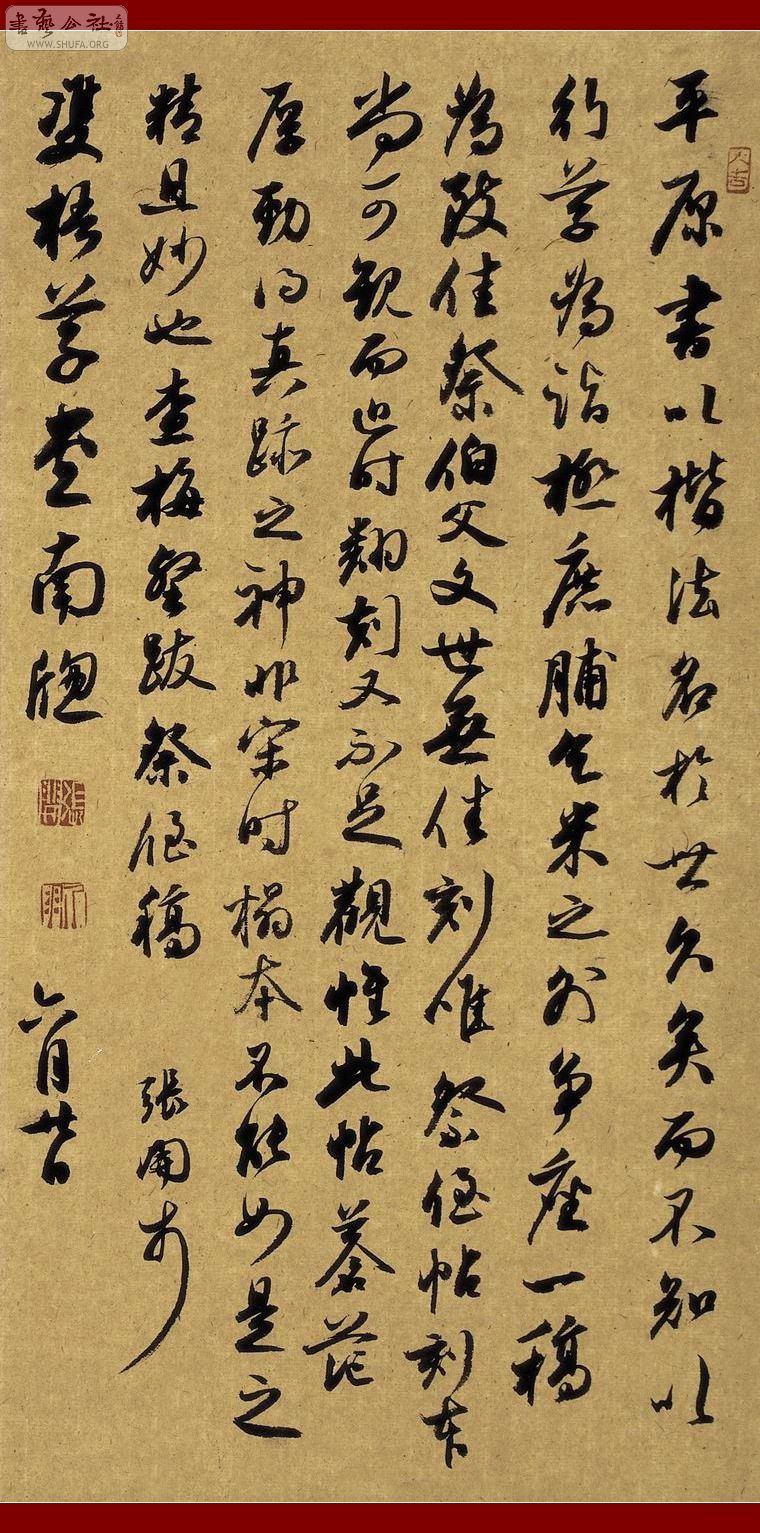 書藝公社
WWW.SHUFA.ORG
平原書以楷法名於世久矣而不知以
行草為詣極鹿脯乞米之外争座一稿
為致佳祭伯父文世無佳刻唯祭侄帖刻本
尚可觀而近時翻刻又不足觀惟此帖蒼茫
厚勁得真跡之神非宋時榻本不能如是之
精且妙也查梅壑跋祭侄稿 張開
雙梧草堂南窗
六月廿日